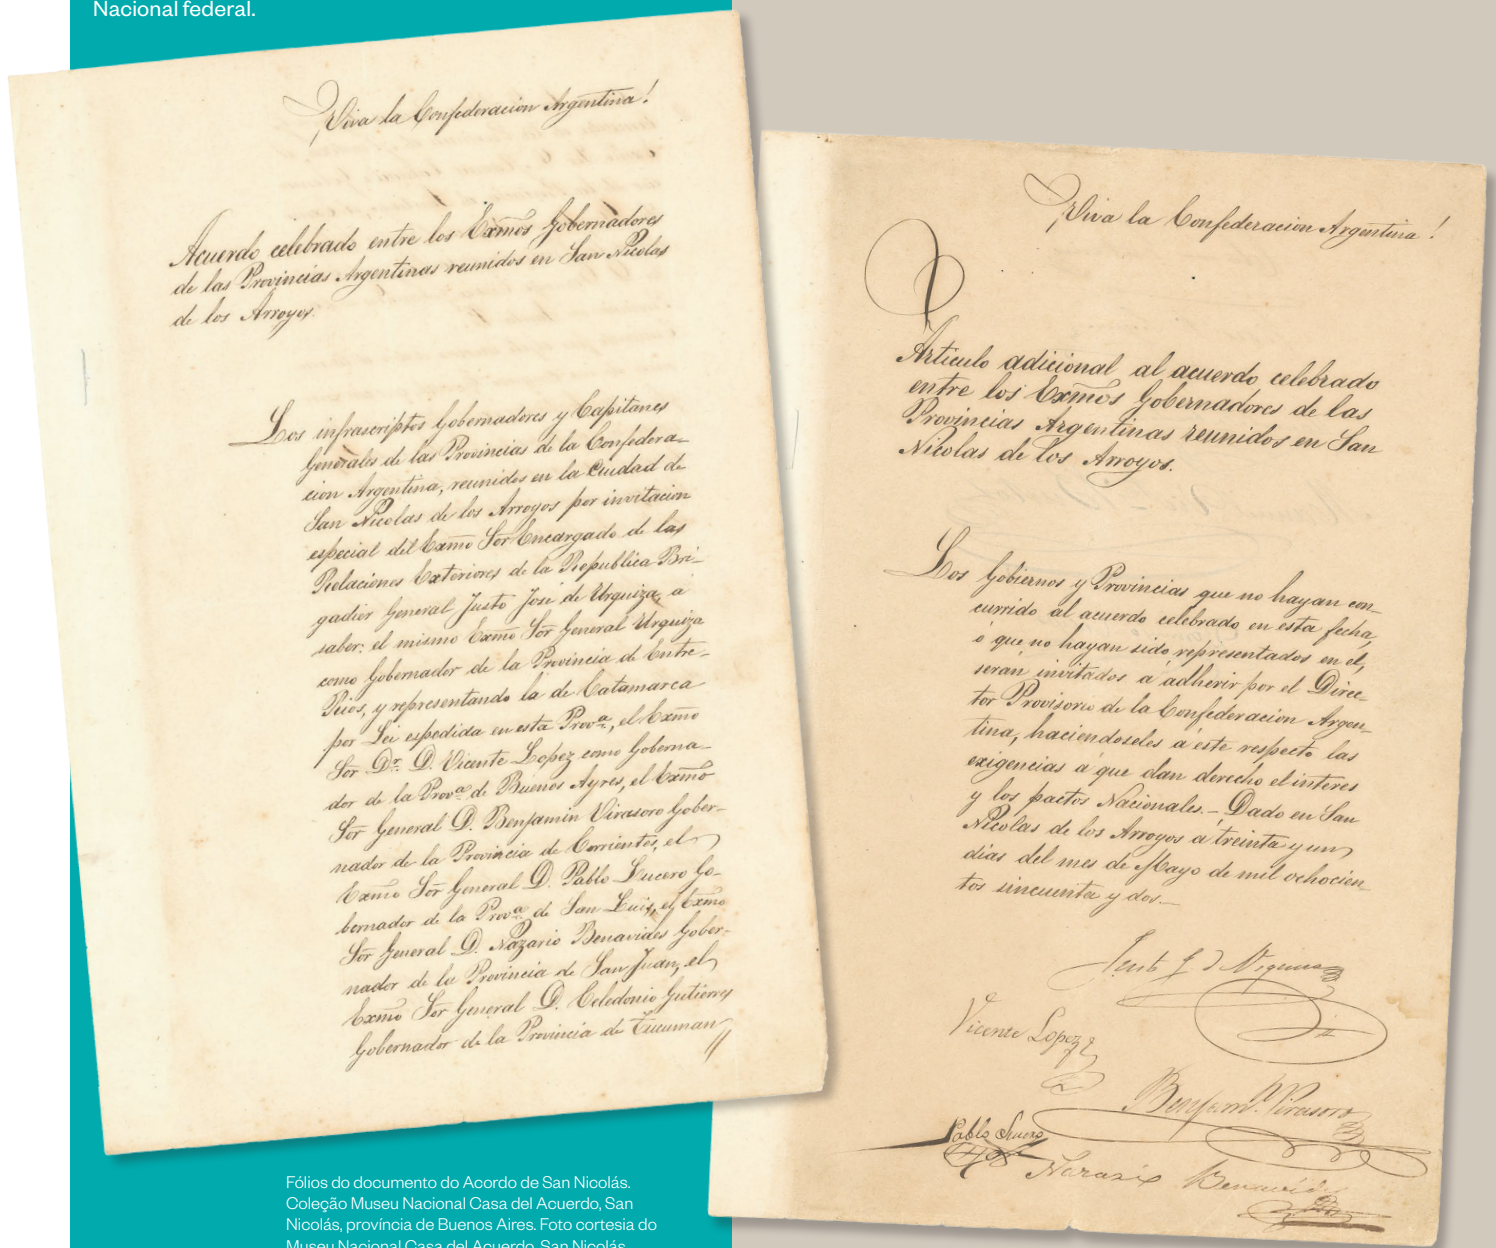 Nacional federal.
¡Viva la Confederacion Argentina!
Acuerdo celebrado entre los Exmos Gobernadores
de las Provincias Argentinas reunidos en San Nicolas
de los Arroyos
Los infrascriptos Gobernadores y Capitanes
Generales de las Provincias de la Confedera-
cion Argentina, reunidos en la Ciudad de
San Nicolas de los Arroyos por invitacion
especial del Exmo Sor Encargado de las
Relaciones Exteriores de la Republica Bri-
gadier General Justo José de Urquiza, á
saber: el mismo Exmo Sor General Urquiza
como Gobernador de la Provincia de Entre-
Rios, y representando la de Catamarca
por Lei espedida en esta Prova, el Exmo
Sor Dr. D. Vicente Lopez como Goberna-
dor de la Prova de Buenos Ayres, el Exmo
Sor General D. Benjamin Virasoro Gober-
nador de la Provincia de Corrientes, el
Exmo Sor General D. Pablo Lucero Go-
bernador de la Prova de San Luis, el Exmo
Sor General D. Nazario Benavides Gober-
nador de la Provincia de San Juan, el
Exmo Sor General D. Celedonio Gutierres
Gobernador de la Provincia de Tucuman //
¡Viva la Confederacion Argentina!
Articulo adicional al acuerdo celebrado
entre los Exmos Gobernadores de las
Provincias Argentinas reunidos en San
Nicolas de los Arroyos.
Los Gobiernos y Provincias que no hayan con-
currido al acuerdo celebrado en esta fecha,
ó que no hayan sido representados en él,
serán invitados á adherir por el Direc-
tor Provisorio de la Confederacion Argen-
tina, haciendoseles á este respecto las
exigencias á que dan derecho el interes
y los pactos Nacionales.- Dado en San
Nicolas de los Arroyos á treinta y un
dias del mes de Mayo de mil ochocien-
tos sincuenta y dos.-
Justo J d Urquiza
Vicente Lopez
Benjamn Virasoro
Pablo Lucero
Nazario Benavides
Fólios do documento do Acordo de San Nicolás.
Coleção Museu Nacional Casa del Acuerdo, San
Nicolás, província de Buenos Aires. Foto cortesia do
Museu Nacional Casa del Acuerdo, San Nicolás